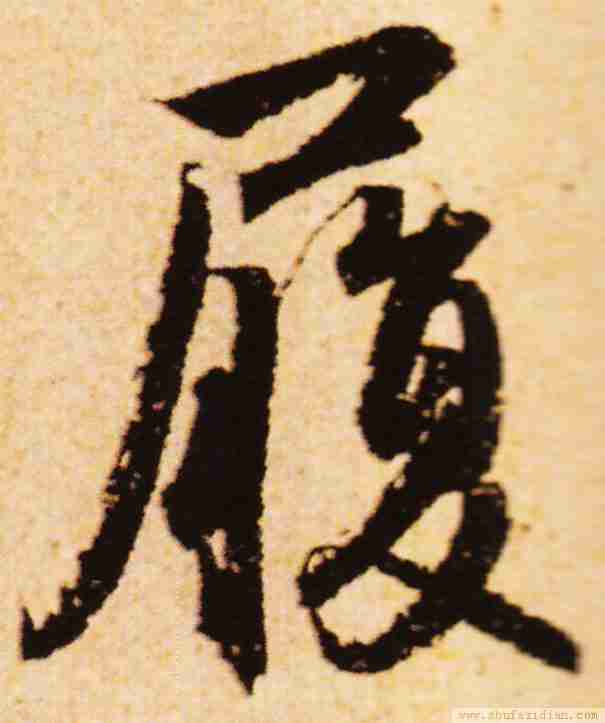 履
www.shufazidian.com